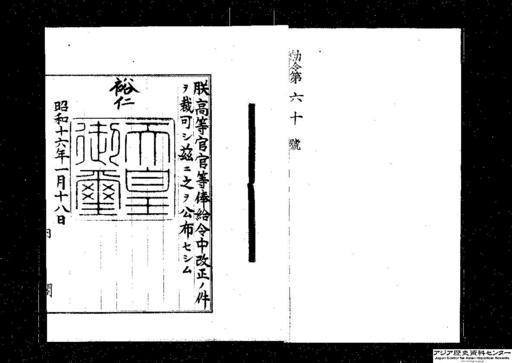 勅令第六十號
朕高等官官等俸給令中改正ノ件
ヲ裁可シ茲ニ之ヲ公布セシム
裕仁
天皇御璽
昭和十六年一月十八日
内閣
アジア歴史資料センター
Japan Center for Asian Historical Records